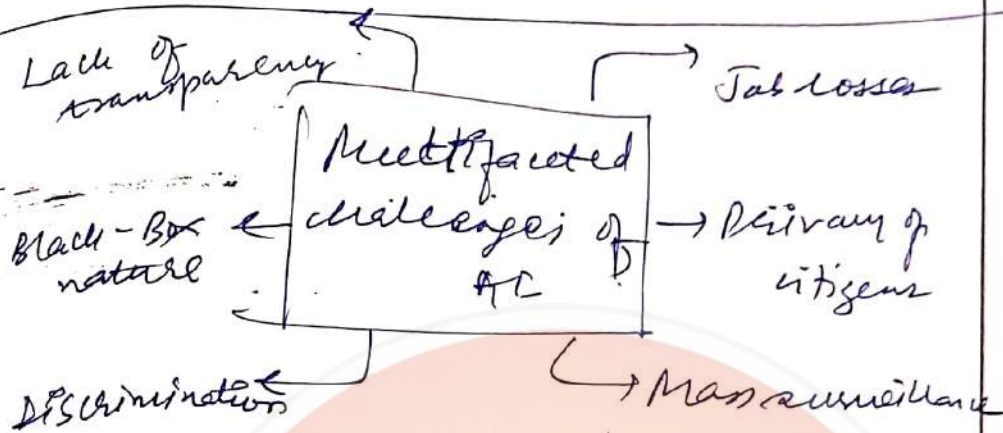 Lack of
transparency
Job losses
Multifaceted
challenges of
AI
Black-Box
nature
Privacy of
citizens
Discrimination
Mass surveillance